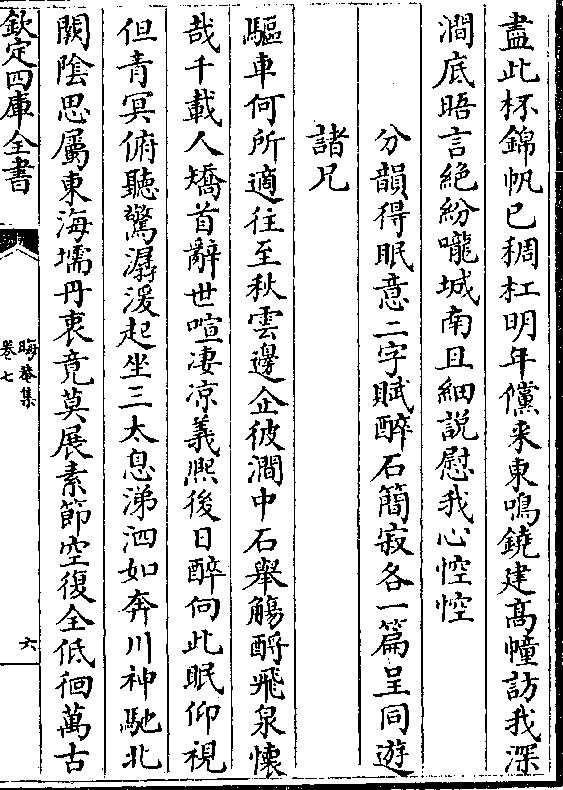 盡此杯錦帆已稠杠明年儻来東鳴鐃建髙幢訪我深
澗底晤言絶紛嚨城南且細説慰我心悾悾
分韻得眠意二字賦醉石簡寂各一篇呈同遊
諸兄
驅車何所適往至秋雲邊企彼澗中石舉觴酹飛泉懐
哉千載人矯首辭世喧凄凉義熙後日醉向此眠仰視
但青冥俯聽驚潺湲起坐三太息涕泗如奔川神馳北
闕陰思屬東海壖丹衷竟莫展素節空復全低徊萬古
欽定四庫全書
晦菴集
卷七
六